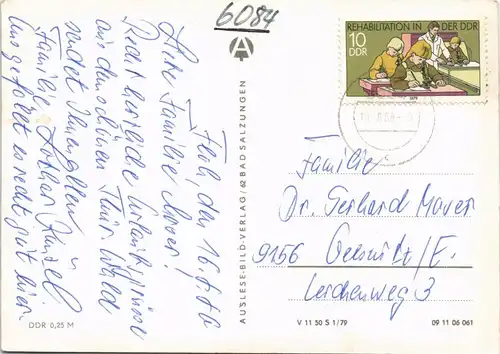 6084
Floh, den 16.6.80
Liebe Familie Mayer!
Recht herzliche Urlaubsgrüsse
aus dem schönen Thür. Wald
sendet Ihnen allen
Familie Lothar
Uns gefällt es recht gut hier.
DDR 0,25 M
A
AUSLESE-BILD-VERLAG/62 BAD SALZUNGEN
REHABILITATION IN DER DDR
10
DDR
1979
Familie
Dr. Gerhard Mayer
9156 Oelsnitz/E.
Lerchenweg 3
V 11 50 S 1/79
09 11 06 061